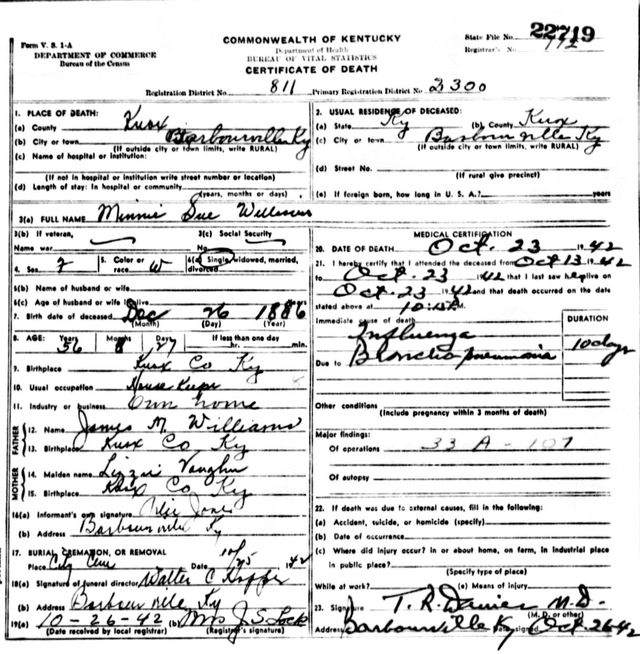 Form V. S. 1-A
DEPARTMENT OF COMMERCE
Bureau of the Census
COMMONWEALTH OF KENTUCKY
Department of Health
BUREAU OF VITAL STATISTICS
CERTIFICATE OF DEATH
State File No. 22719
Registrar's No.
Registration District No. 811 Primary Registration District No. 2300
1. PLACE OF DEATH:
(a) County Knox
(b) City or town Barbourville Ky
(If outside city or town limits, write RURAL)
(c) Name of hospital or institution:
(If not in hospital or institution write street number or location)
(d) Length of stay: In hospital or community
(years, months or days)
2. USUAL RESIDENCE OF DECEASED:
(a) State Ky (b) County Knox
(c) City or town Barbourville Ky
(If outside city or town limits, write RURAL)
(d) Street No.
(If rural give precinct)
(e) If foreign born, how long in U. S. A.? years
3(a) FULL NAME Minnie Sue Williams
3(b) If veteran,
Name war
3(c) Social Security
No.
4. Sex F 5. Color or race W 6(a) Single, widowed, married, divorced
6(b) Name of husband or wife
6(c) Age of husband or wife if alive
7. Birth date of deceased Dec 26 1886
(Month) (Day) (Year)
8. AGE: Years Months Days If less than one day
56 8 27 hr. min.
9. Birthplace Knox Co Ky
10. Usual occupation House Keeper
11. Industry or business Own home
FATHER
12. Name James M. Williams
13. Birthplace Knox Co Ky
MOTHER
14. Maiden name Lizzie Vaughn
15. Birthplace Knox Co Ky
16(a) Informant's own signature Jones
(b) Address Barbourville Ky
17. BURIAL, CREMATION, OR REMOVAL
Place Date 1942
18(a) Signature of funeral director Walter C
(b) Address Barbourville Ky
19(a) 10-26-42 (b) Mrs J. S. Lock
(Date received by local registrar) (Registrar's signature)
MEDICAL CERTIFICATION
20. DATE OF DEATH Oct. 23 1942
21. I hereby certify that I attended the deceased from Oct 13 1942
to Oct. 23 1942 that I last saw h alive on
Oct. 23 1942 and that death occurred on the date
stated above at 10:15 M.
Immediate cause of death DURATION
Influenza 10 days
Due to Broncho pneumonia
Other conditions
(Include pregnancy within 3 months of death)
Major findings:
Of operations 33 A - 107
Of autopsy
22. If death was due to external causes, fill in the following:
(a) Accident, suicide, or homicide (specify)
(b) Date of occurrence
(c) Where did injury occur? In or about home, on farm, in industrial place
in public place?
(Specify type of place)
While at work? (e) Means of injury
23. Signature T. R. Davies M.D.
(M. D. or other)
Address Barbourville Ky Date signed Oct. 26 42